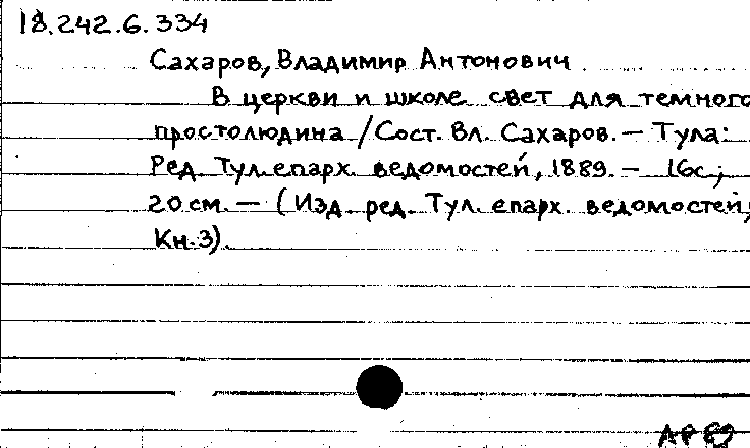 18.242.6.334
Сахаров, Владимир Антонович
В церкви и школе свет для темного
простолюдина / Сост. Вл. Сахаров. — Тула:
Ред. Тул. епарх. ведомостей, 1889. — 16с.;
20 см. — (Изд. ред. Тул. епарх. ведомостей;
Кн. 3).